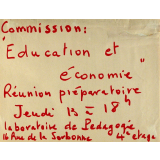 Commission:
"Education et
économie"
Réunion préparatoire
Jeudi 13 à 18h
laboratoire de Pédagogie
16 Rue de la Sorbonne 4e étage